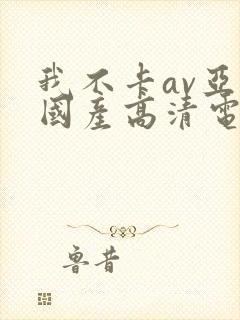 我不卡av亞
國產高清電
魯昔